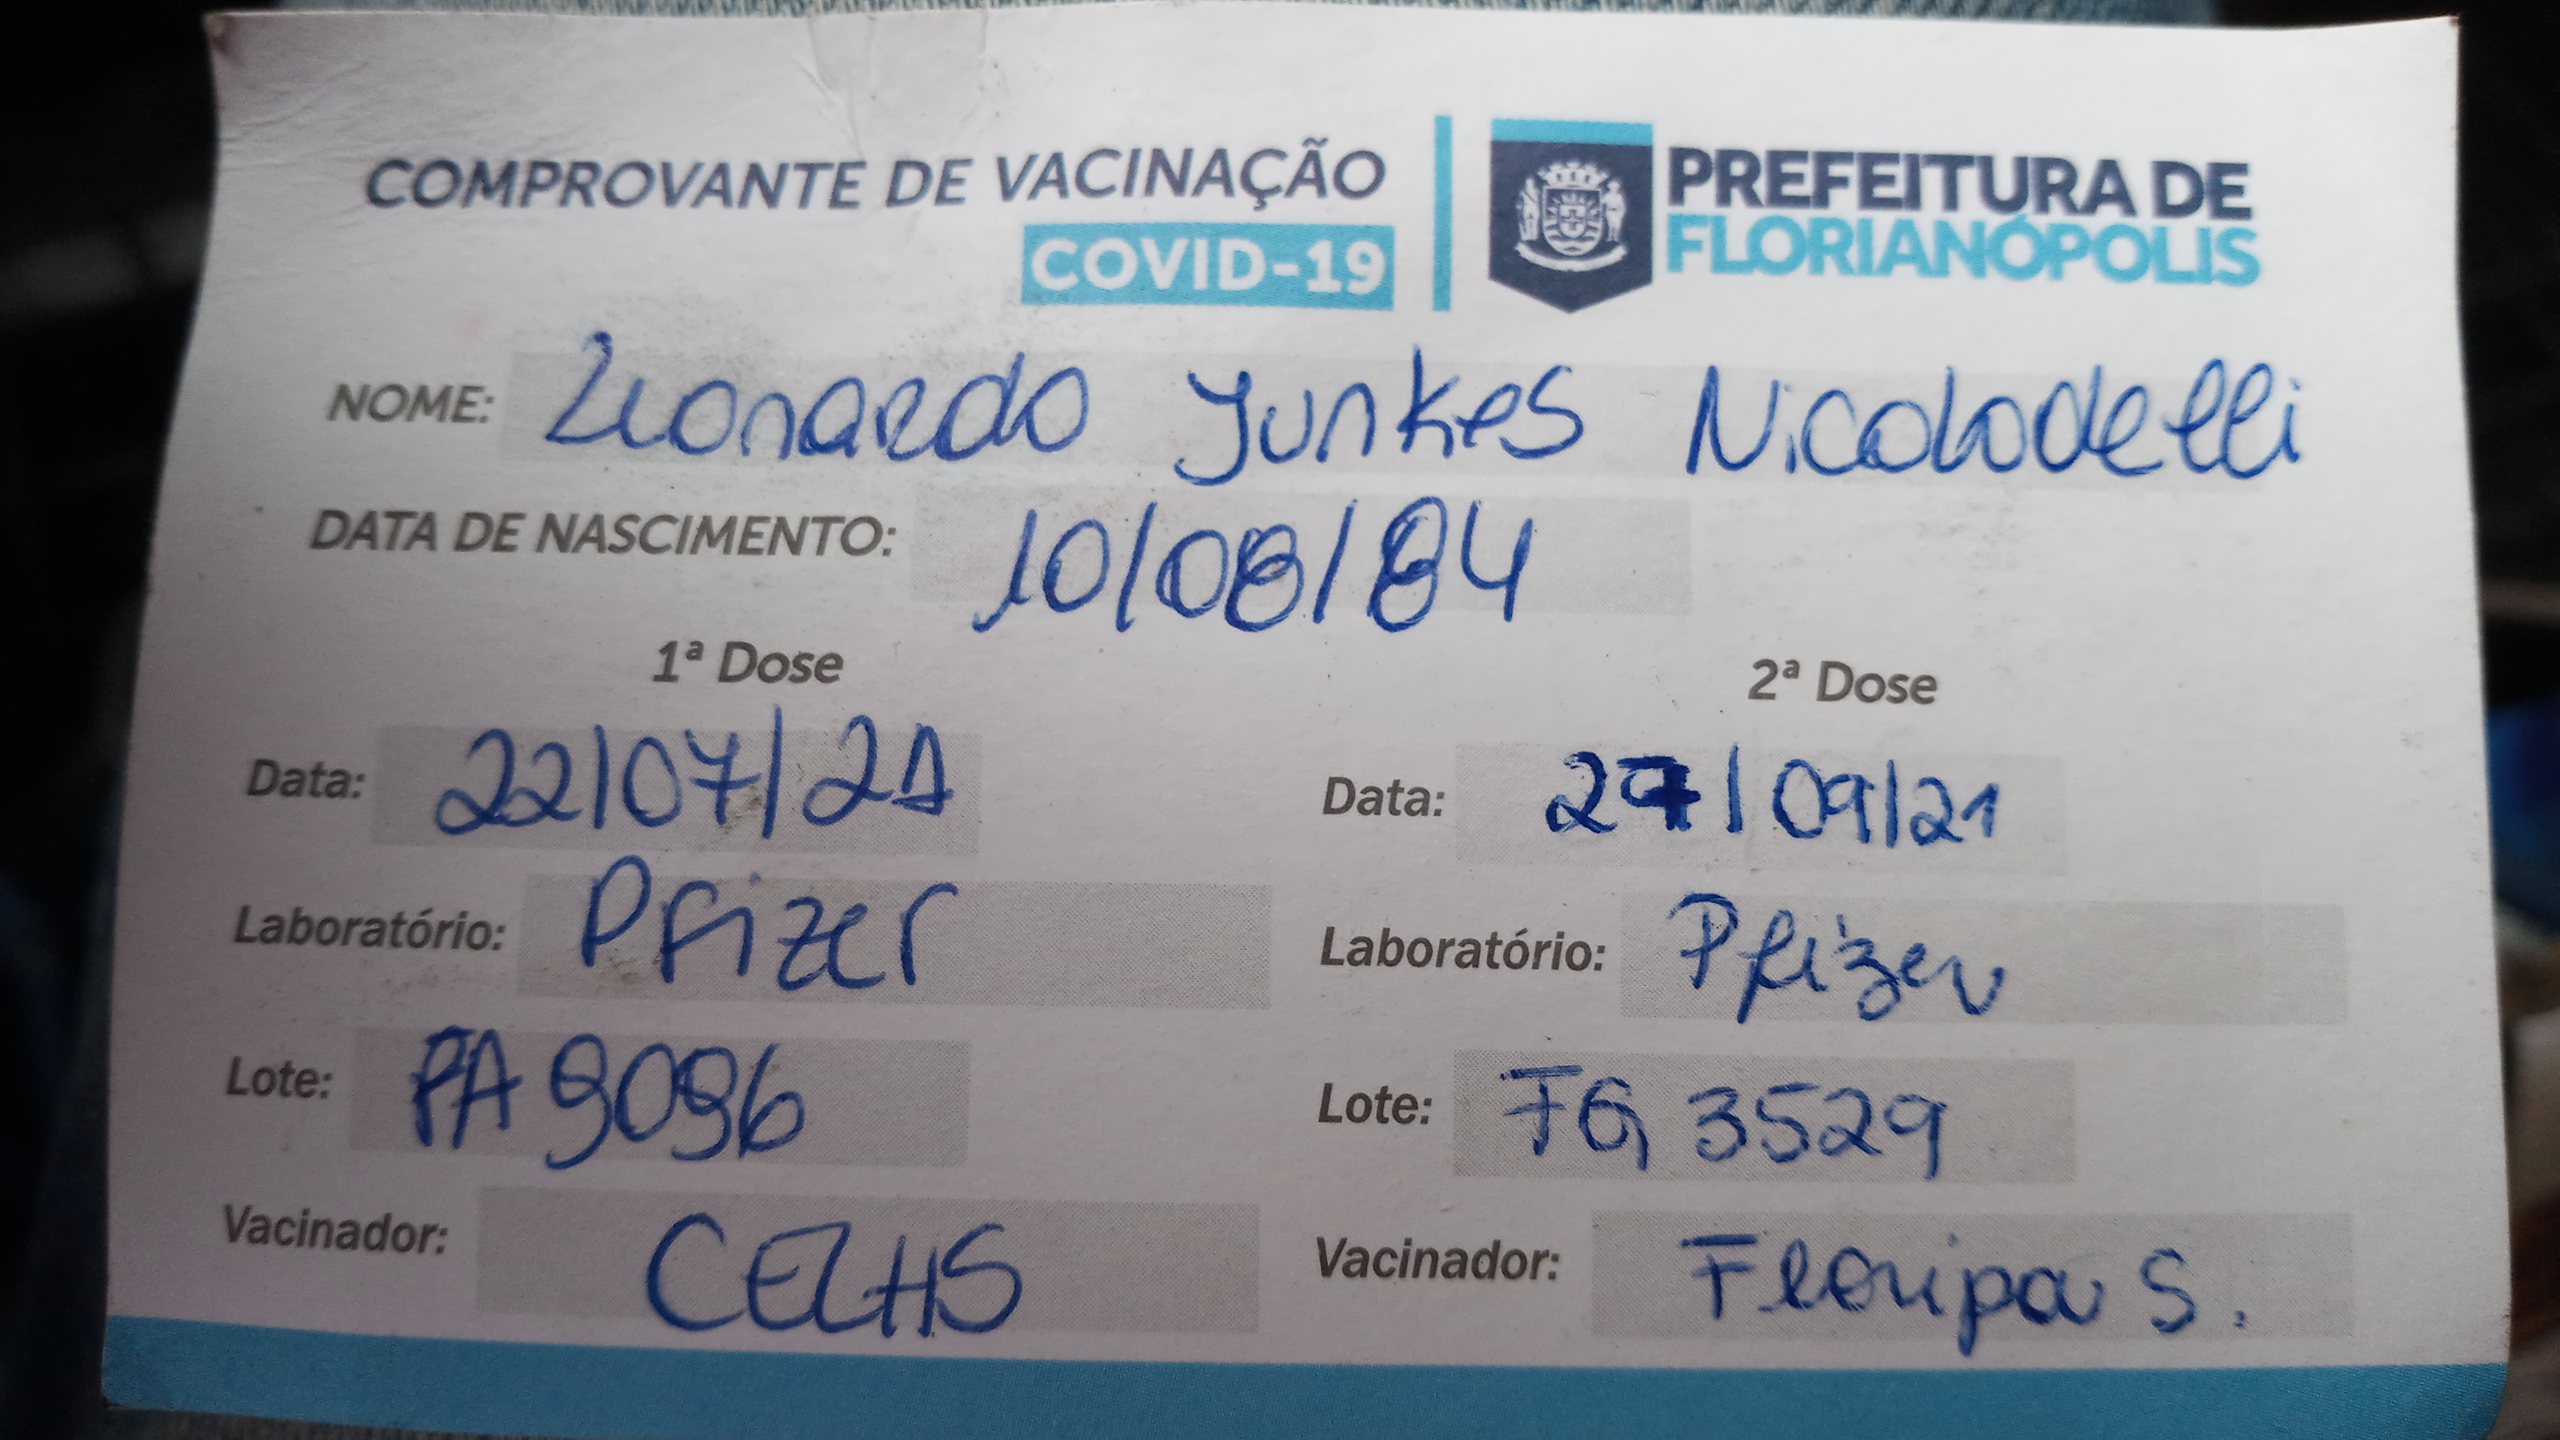 COMPROVANTE DE VACINAÇÃO
COVID-19
PREFEITURA DE
FLORIANÓPOLIS
NOME: Leonardo Junkes Nicolodelli
DATA DE NASCIMENTO: 10/08/84
1ª Dose
Data: 22/07/21
Laboratório: Pfizer
Lote: FA9096
Vacinador: CELHS
2ª Dose
Data: 27/09/21
Laboratório: Pfizer
Lote: FG 3529
Vacinador: Floripa S.